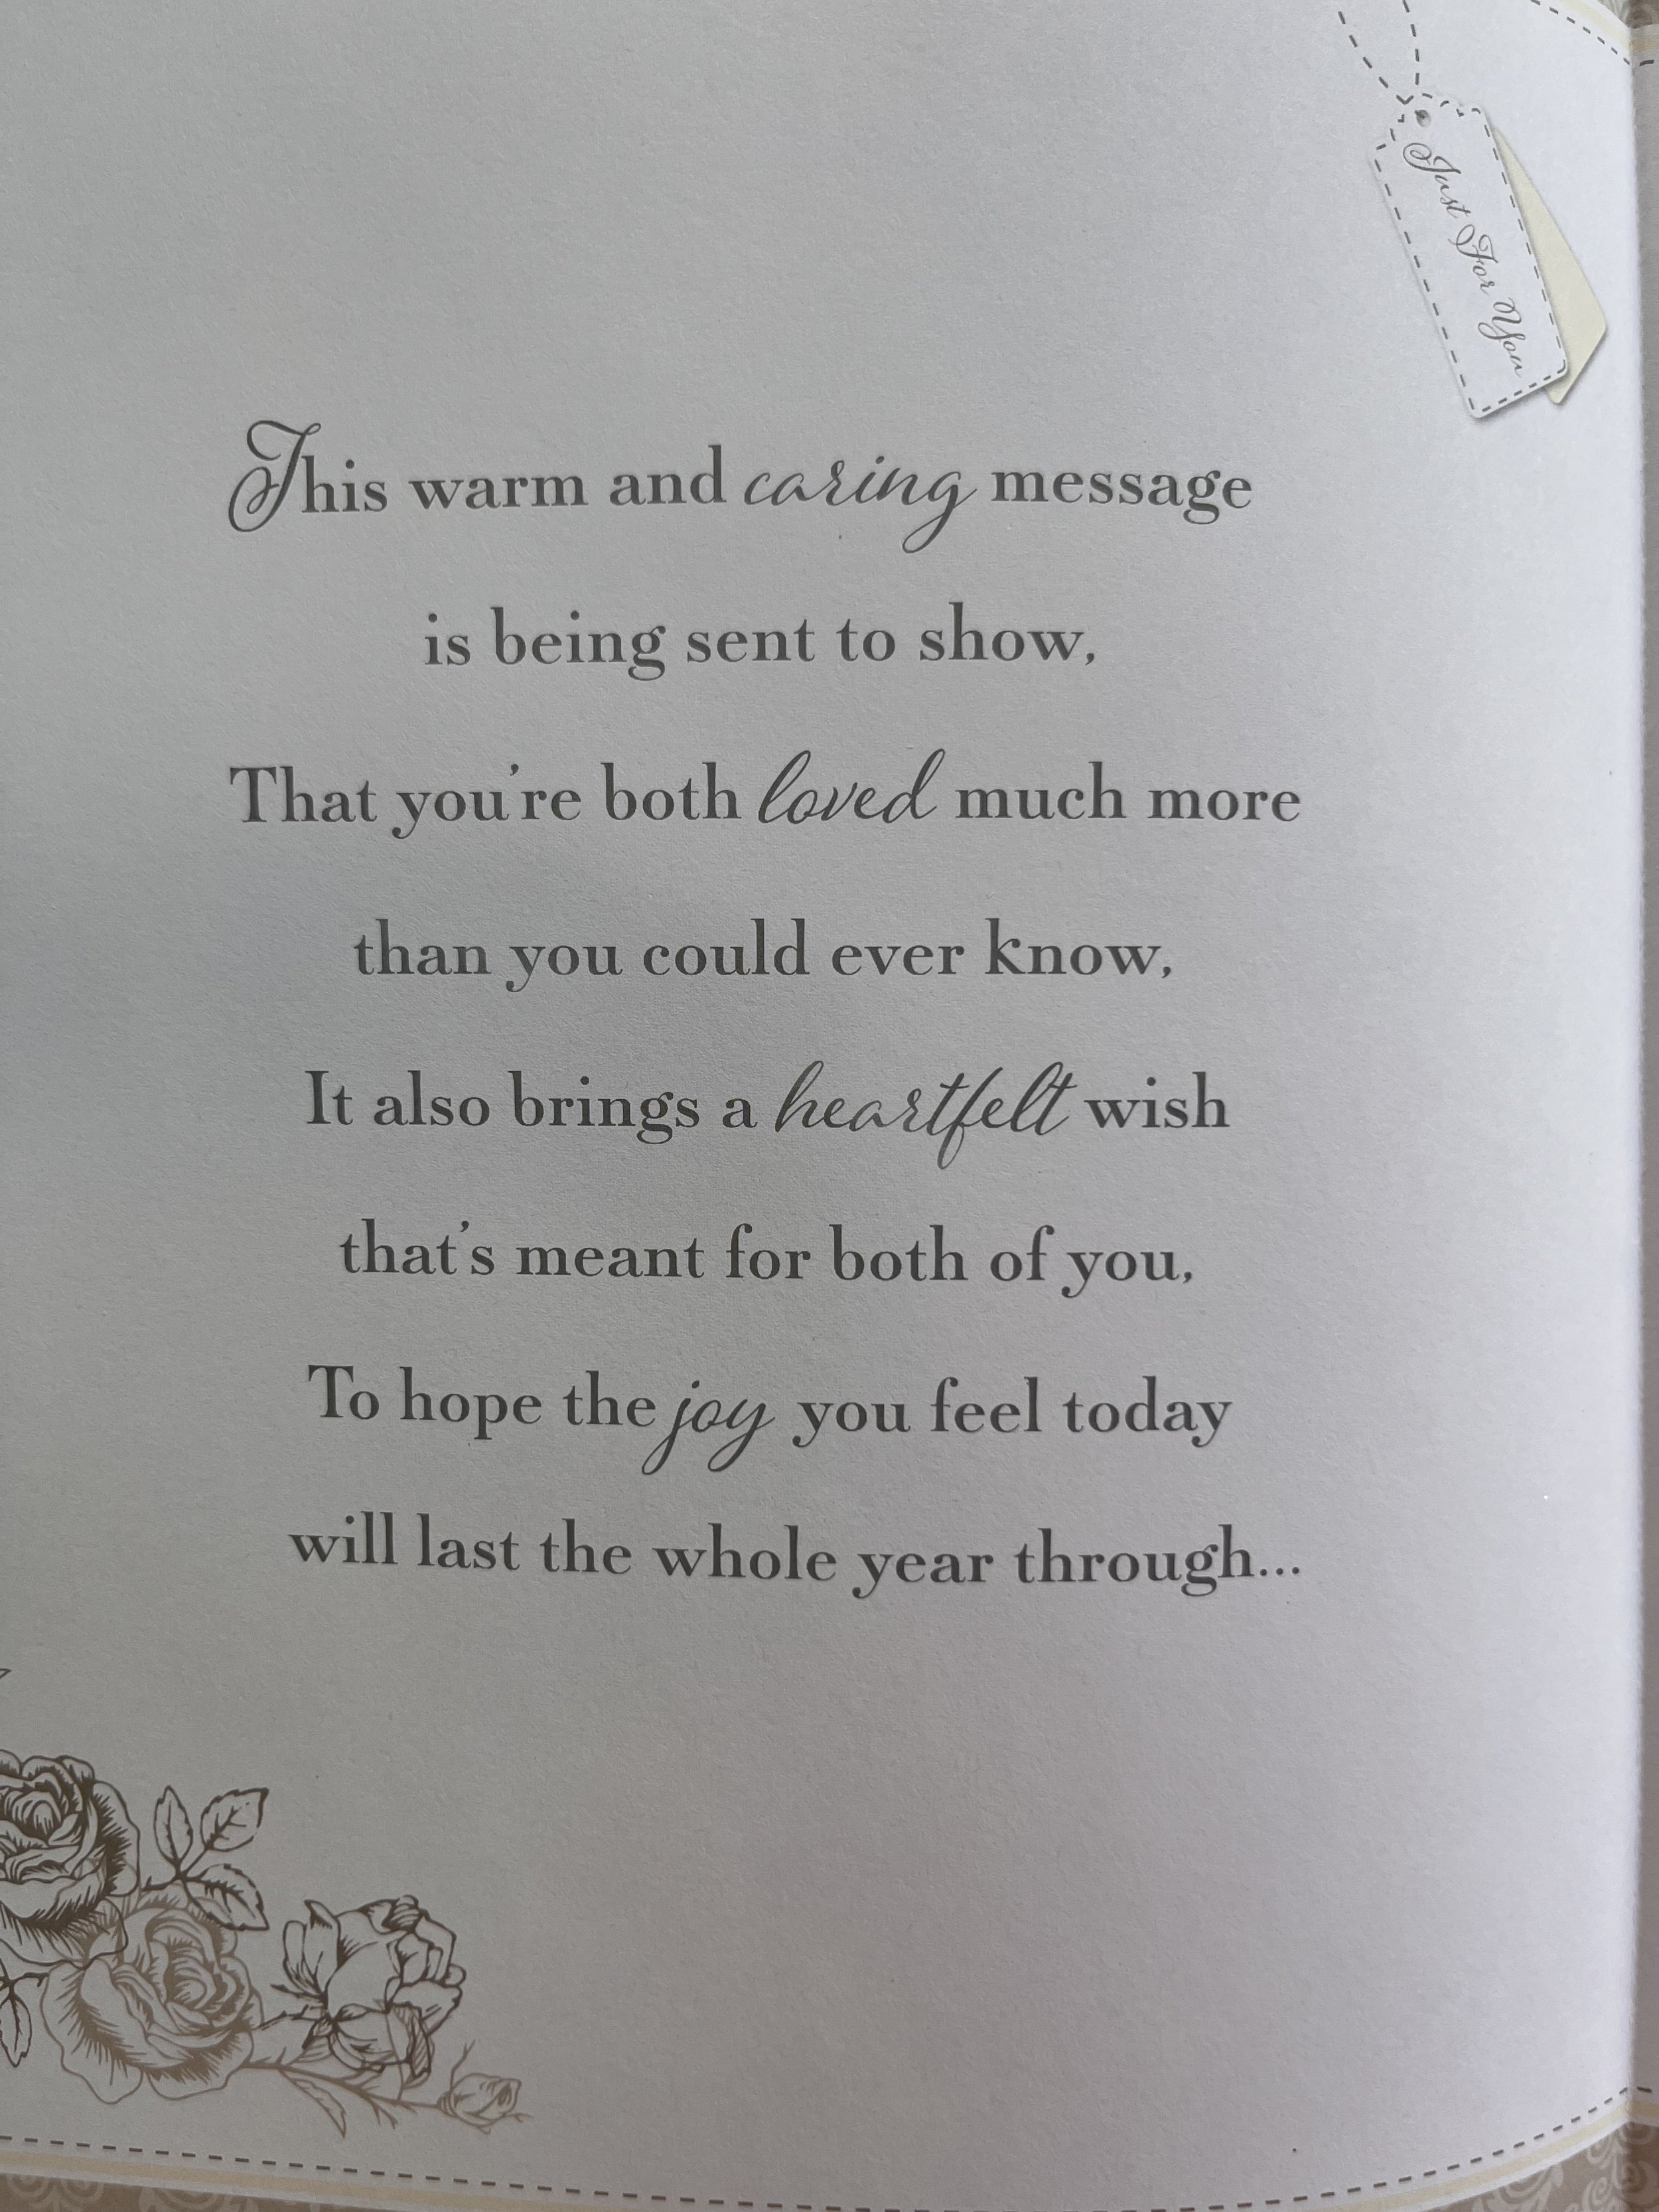 Just For You
This warm and caring message
is being sent to show,
That you're both loved much more
than you could ever know,
It also brings a heartfelt wish
that's meant for both of you,
To hope the joy you feel today
will last the whole year through...